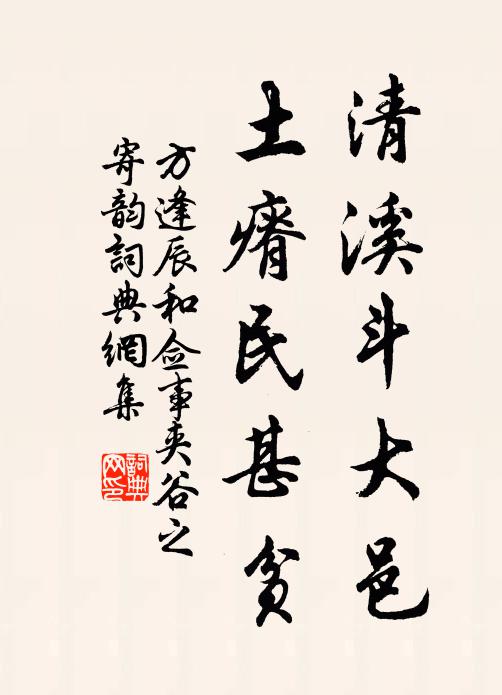 清溪斗大邑
土瘠民甚贫
方逢辰和佥事夹谷之
寄韵詞典網集
詞典网印